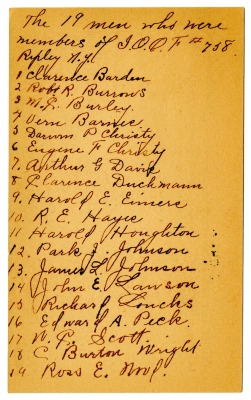 The 19 men who were
members of I.O.O.F # 758
Ripley N.Y.
1 Clarence Barden
2 Robt R. Burrows
3 M. R. Burley.
4 Vern Barnec
5 Darwin P Christy
6 Eugene F Christy
7. Arthur G Davis
8 Clarence Duckmann
9. Harold E. Eimers
10. R. E. Hayes
11 Harold Houghton
12. Park J. Johnson
13. James L. Johnson
14 John E. Lawson
15 Richard Loucks
16 Edward A. Peck.
17 W. P. Scott
18 C. Burton Wright
19 Ross E.